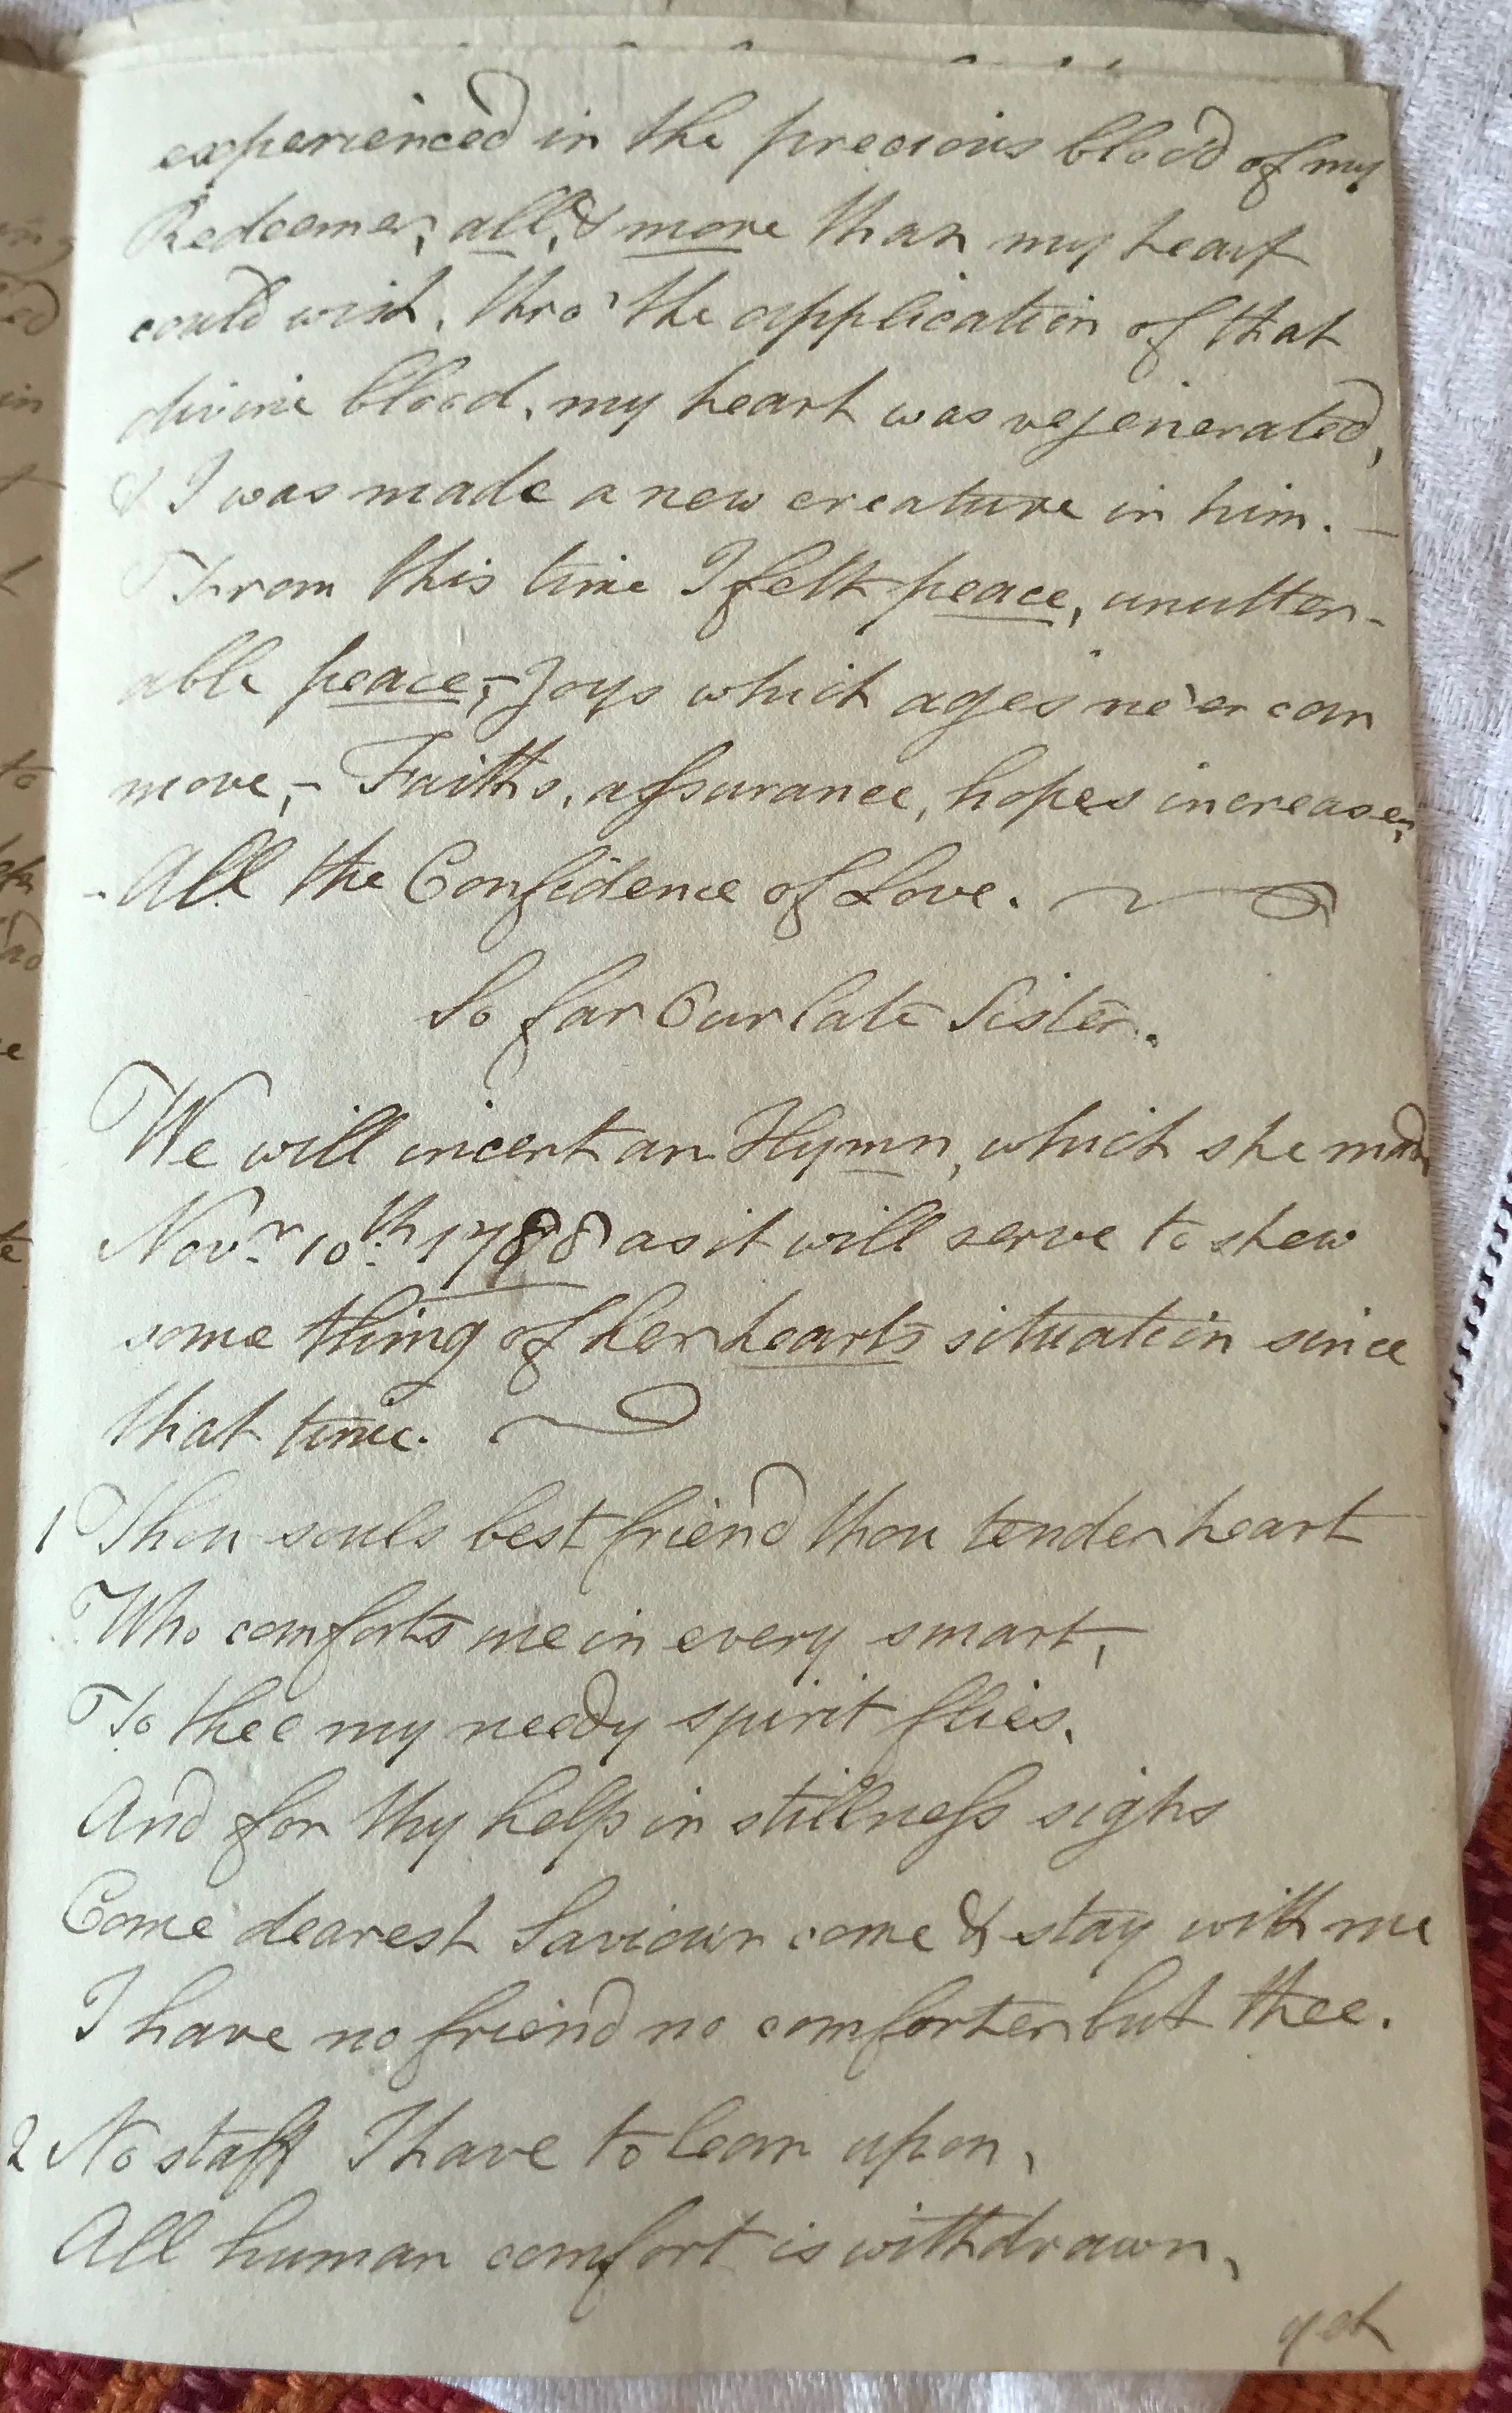 experienced in the precious blood of my
Redeemer, all, & more than my heart
could wish, thro' the application of that
divine blood, my heart was regenerated,
& I was made a new creature in him. —
From this time I felt peace, unutter-
able peace, – Joys which ages ne'er can
move, – Faiths, assurance, hopes increase,
- All the Confidence of Love.
So far Our late Sister.
We will incert an Hymn, which she made
Novr. 10th. 1788 as it will serve to shew
some thing of her hearts situation since
that time.
1 Thou souls best friend thou tender heart
Who comforts me in every smart,
To thee my needy spirit flies,
And for thy help in stillness sighs
Come dearest Saviour come & stay with me
I have no friend no comforter but thee.
2 No staff I have to lean upon,
All human comfort is withdrawn,
yet